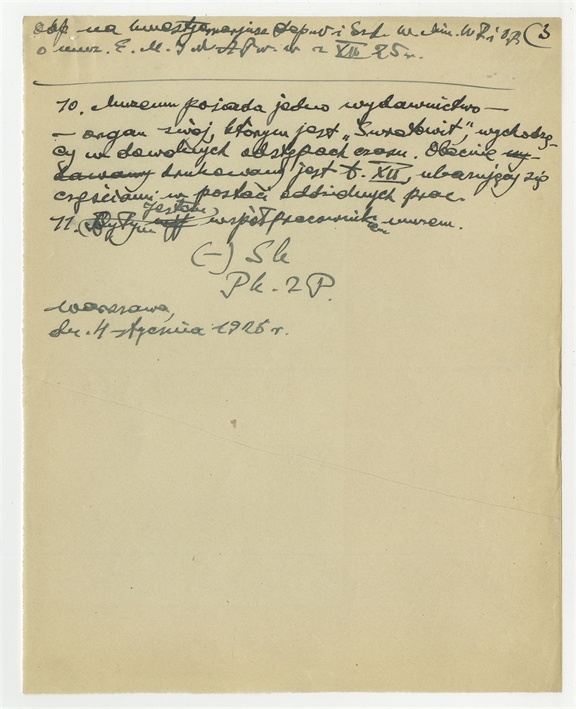 odp na kwestjonarjusz Dep. N. i Szk. W. Min. W.R. i O.P. (3
o muz. E. M. z XII 25 r.
10. Muzeum posiada jedno wydawnictwo –
– organ swój, którym jest „Światowit", wychodzą-
cy w dowolnych odstępach czasu. Obecnie wy-
dawany drukowany jest t. XII, ukazujący się
częściami w postaci oddzielnych prac.
jestem
11. Byłym współpracownikiem muzeum.
(–) Sk
Pk. 2P.
Warszawa,
dn. 4 stycznia 1926 r.